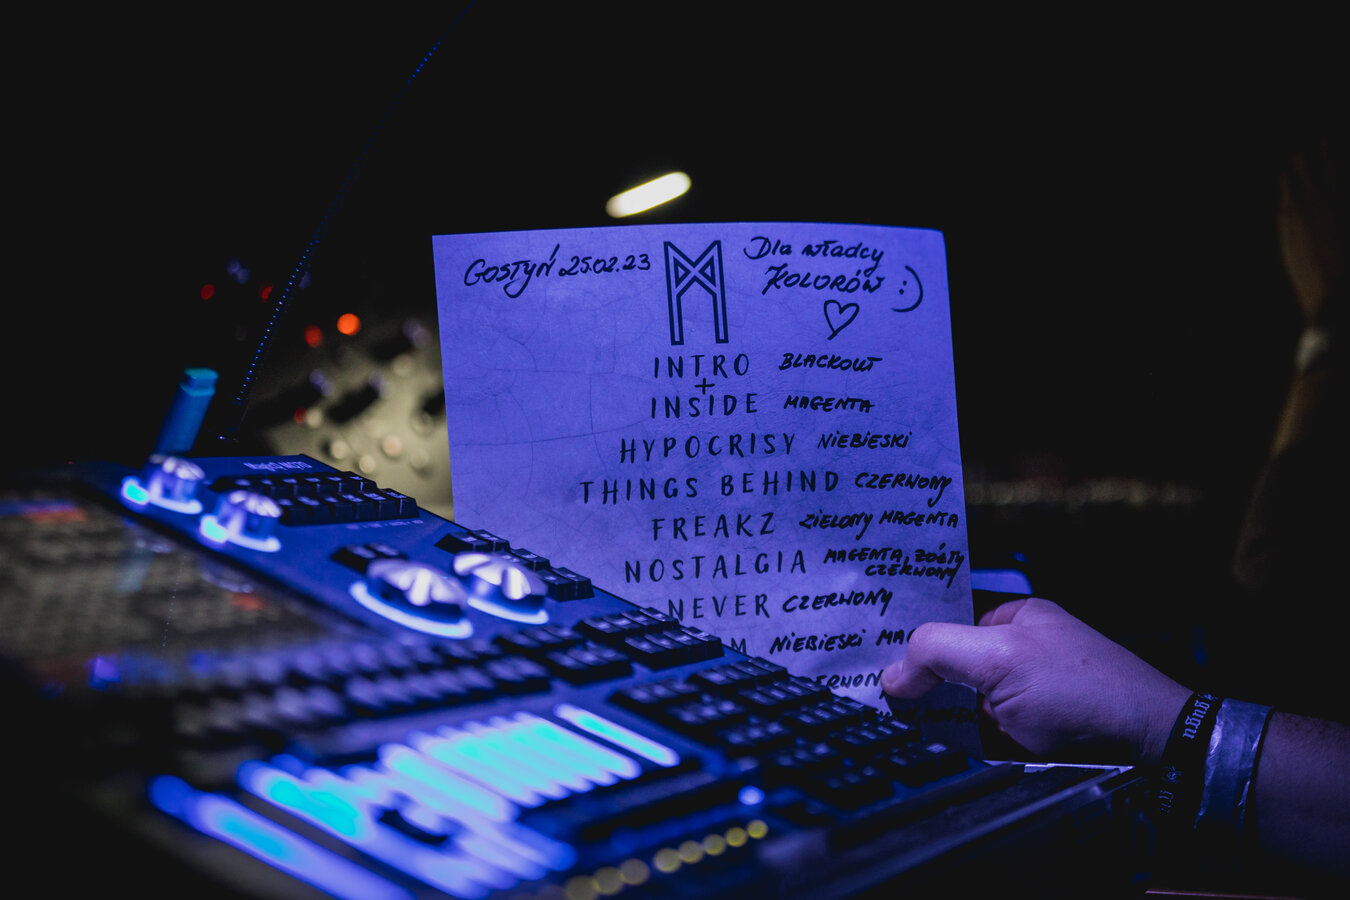 GOSTYŃ 25.02.23
Dla władcy
KOLORÓW :)
INTRO BLACKOUT
+
INSIDE MAGENTA
HYPOCRISY NIEBIESKI
THINGS BEHIND CZERWONY
FREAKZ ZIELONY MAGENTA
NOSTALGIA MAGENTA, ŻÓŁTY
CZERWONY
NEVER CZERWONY
M NIEBIESKI MA
ZERWON